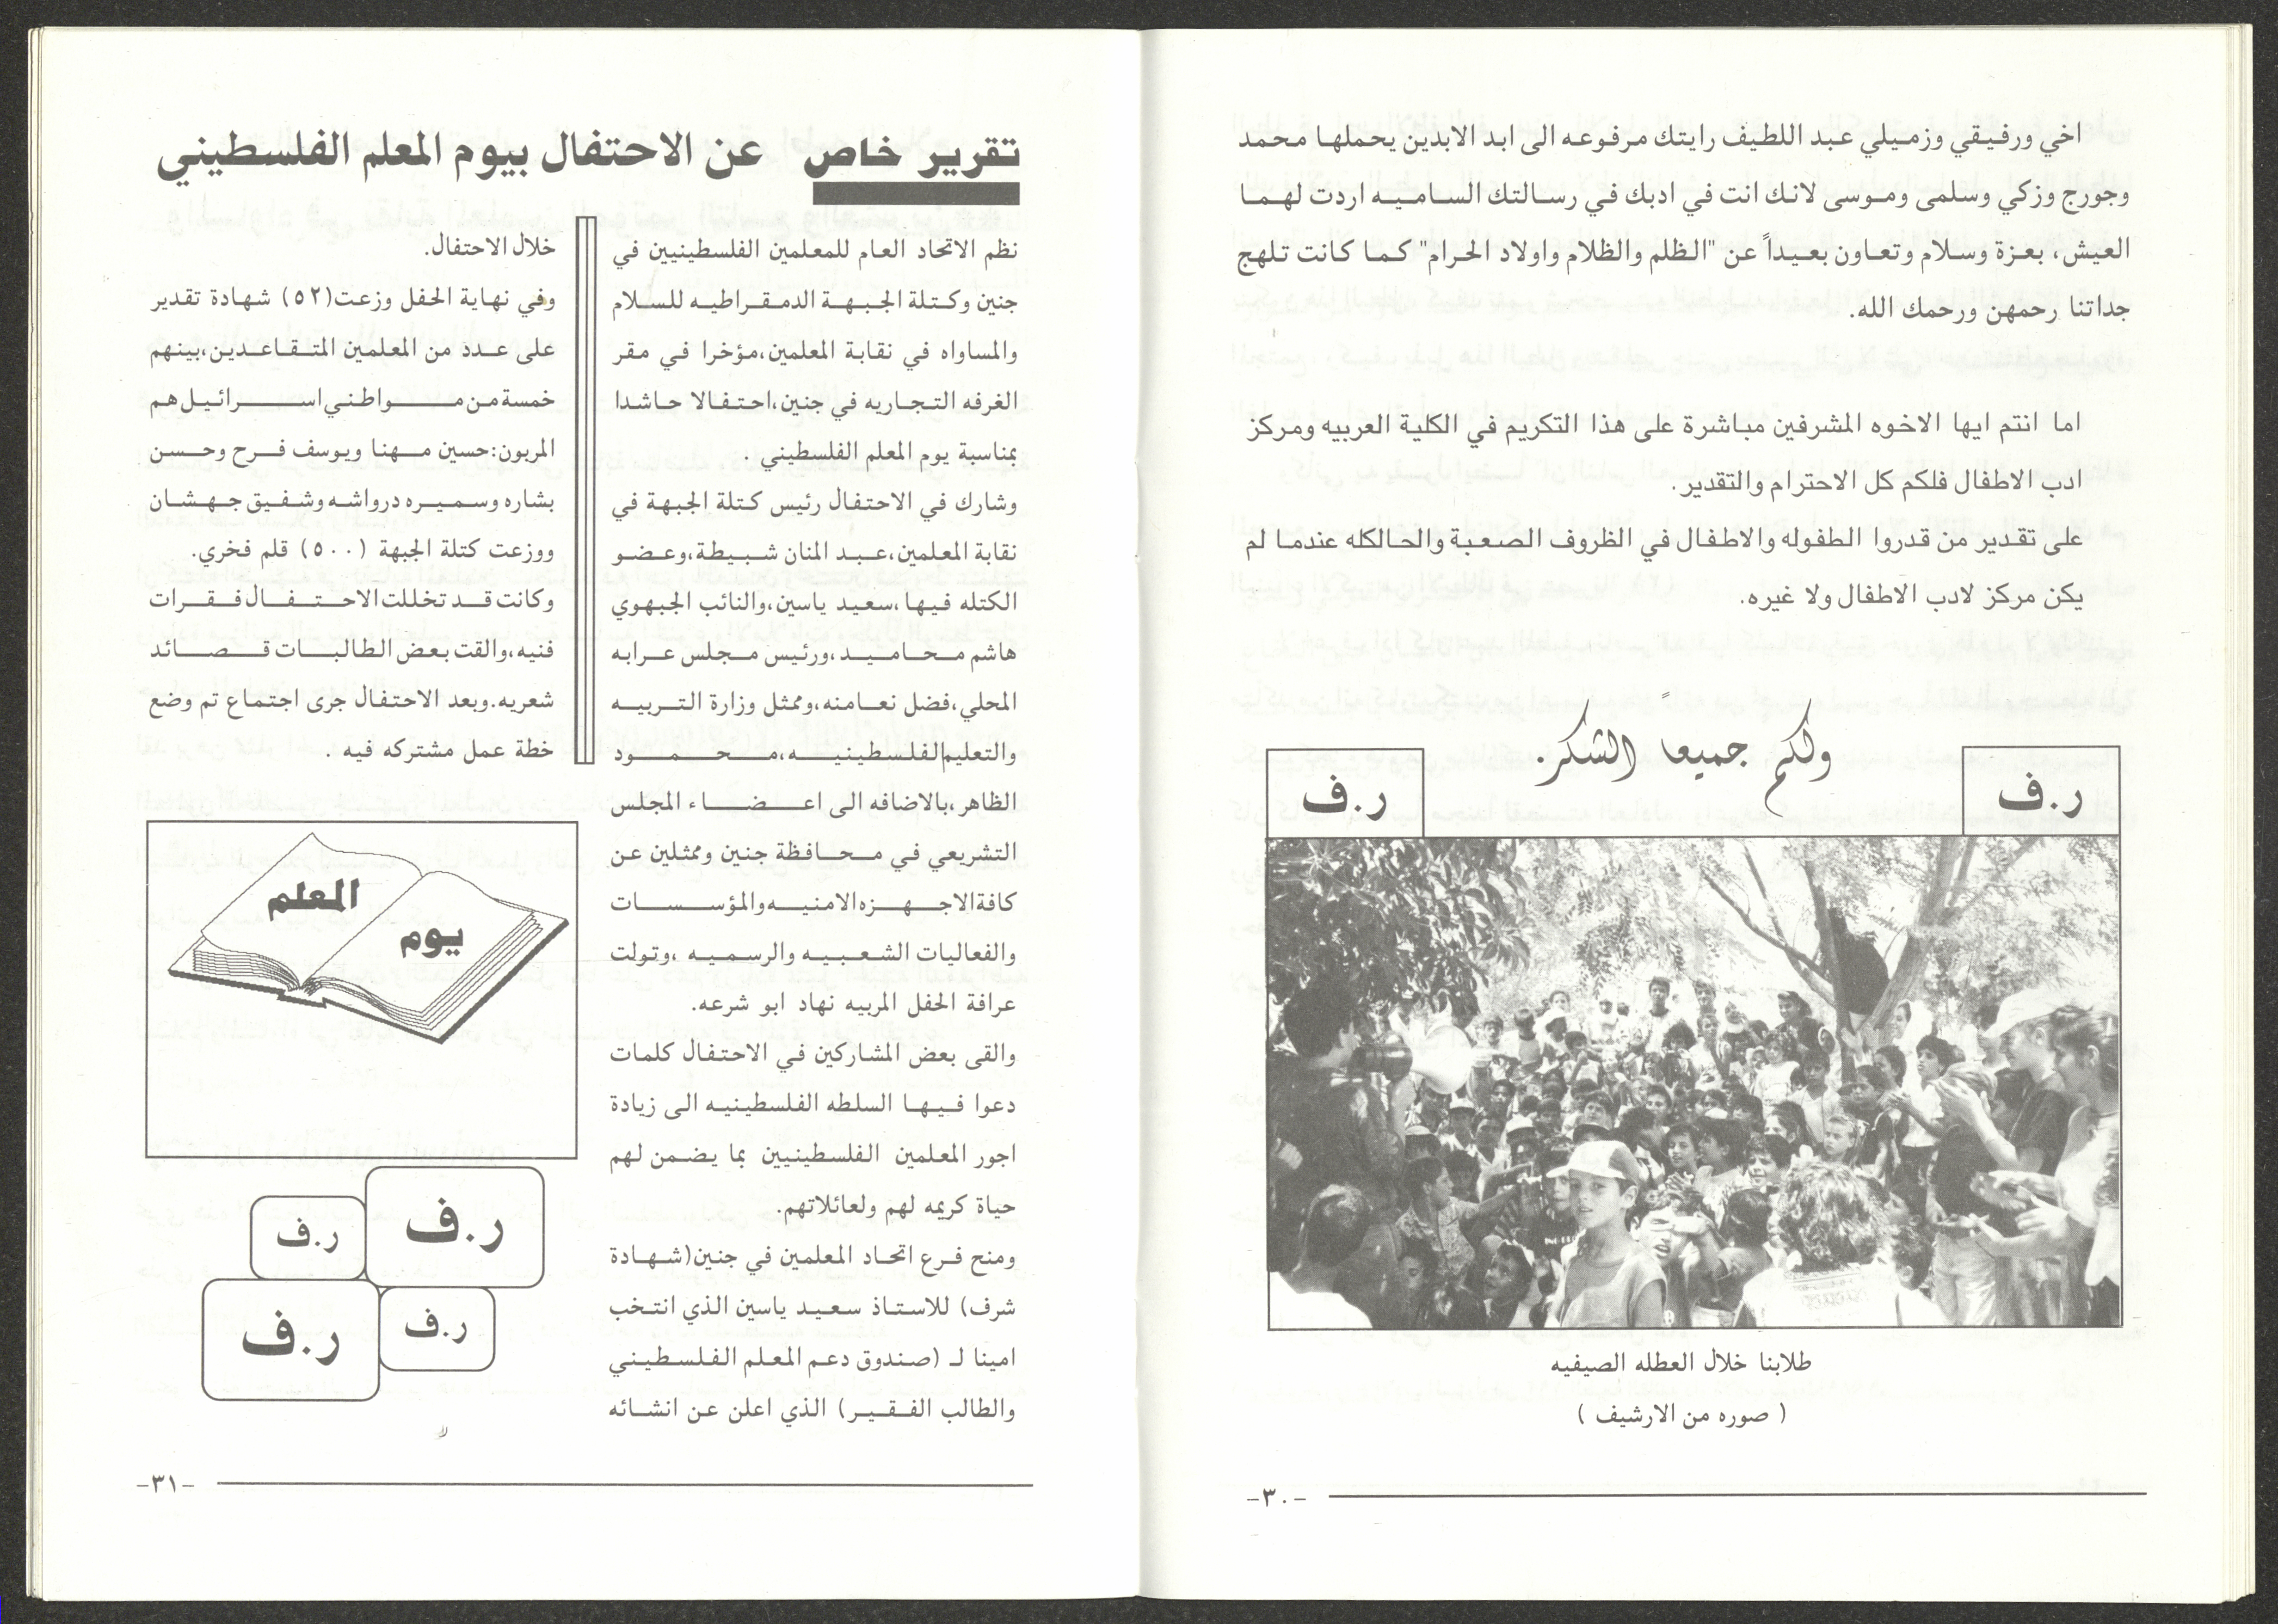 اخي ورفيقي وزميلي عبد اللطيف رايتك مرفوعه الى ابد الابدين يحملها محمد
وجورج وزكي وسلمى وموسى لانك انت في ادبك في رسالتك الساميه اردت لهما
العيش، بعزة وسلام وتعاون بعيداً عن "الظلم والظلام واولاد الحرام" كما كانت تلهج
جداتنا رحمهن ورحمك الله.
اما انتم ايها الاخوه المشرفين مباشرة على هذا التكريم في الكلية العربيه ومركز
ادب الاطفال فلكم كل الاحترام والتقدير.
على تقدير من قدروا الطفوله والاطفال في الظروف الصعبة والحالكله عندما لم
يكن مركز لادب الاطفال ولا غيره.
ولكم جميعاً الشكر.
ر.ف
ر.ف
طلابنا خلال العطله الصيفيه
( صوره من الارشيف )
-٣٠-
تقرير خاص عن الاحتفال بيوم المعلم الفلسطيني
نظم الاتحاد العام للمعلمين الفلسطينيين في
جنين وكتلة الجبهة الدمقراطيه للسلام
والمساواه في نقابة المعلمين،مؤخرا في مقر
الغرفه التجاريه في جنين،احتفالا حاشدا
بمناسبة يوم المعلم الفلسطيني .
وشارك في الاحتفال رئيس كتلة الجبهة في
نقابة المعلمين،عبد المنان شبيطة،وعضو
الكتله فيها،سعيد ياسين،والنائب الجبهوي
هاشم محاميد،ورئيس مجلس عرابه
المحلي،فضل نعامنه،وممثل وزارة التربيه
والتعليم الفلسطينيه،محمود
الظاهر،بالاضافه الى اعضاء المجلس
التشريعي في محافظة جنين وممثلين عن
كافة الاجهزه الامنيه والمؤسسات
والفعاليات الشعبيه والرسميه ،وتولت
عرافة الحفل المربيه نهاد ابو شرعه.
والقى بعض المشاركين في الاحتفال كلمات
دعوا فيها السلطه الفلسطينيه الى زيادة
اجور المعلمين الفلسطينيين بما يضمن لهم
حياة كريمه لهم ولعائلاتهم.
ومنح فرع اتحاد المعلمين في جنين(شهادة
شرف) للاستاذ سعيد ياسين الذي انتخب
امينا لـ (صندوق دعم المعلم الفلسطيني
والطالب الفقير) الذي اعلن عن انشائه
خلال الاحتفال.
وفي نهاية الحفل وزعت(٥٢) شهادة تقدير
على عدد من المعلمين المتقاعدين،بينهم
خمسة من مواطني اسرائيل هم
المربون:حسين مهنا ويوسف فرح وحسن
بشاره وسميره درواشه وشفيق جهشان
ووزعت كتلة الجبهة (٥٠٠) قلم فخري.
وكانت قد تخللت الاحتفال فقرات
فنيه،والقت بعض الطالبات قصائد
شعريه.وبعد الاحتفال جرى اجتماع تم وضع
خطة عمل مشتركه فيه .
يوم
المعلم
ر.ف
ر.ف
ر.ف
ر.ف
-٣١-